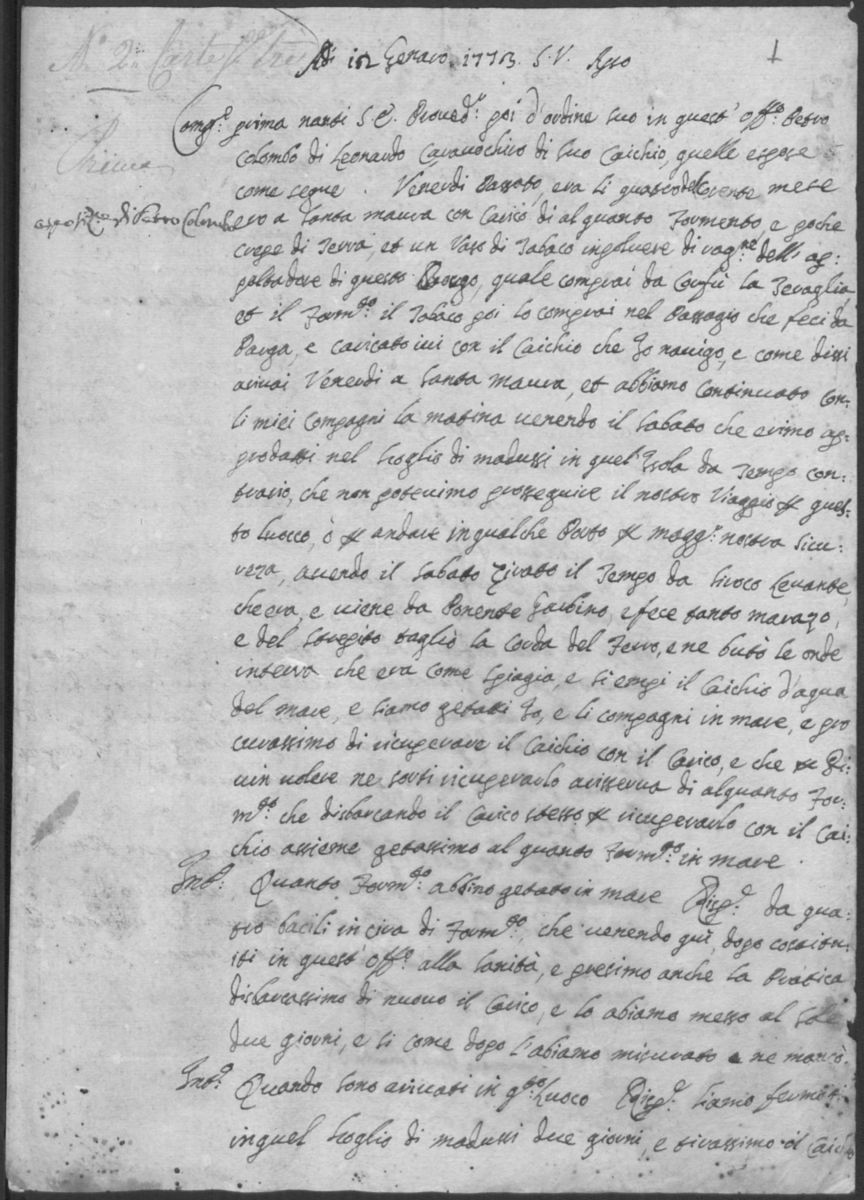 N.° 2.° Carte
Adì 12 Genaro 1773. S.V.
1
Comp.e prima nanti S.E. Proved.r poi d'ordine suo in quest' Off.o Petro
Prima
Colombo di Leonardo Caravochiro di suo Caichio, quelle espose
come segue. Venerdì passato, era li quatro del corente mese
esposiz.ne di Petro Colombo
ero a Santa Maura con Carico di alquanto Formento, e poche
crepe di Terra, et un Vaso di Tabaco in polvere di rag.ne dell' ap:
paltadore di questo Luogo, quale comprai da Corfù la Teraglia,
et il Form.to il Tabaco poi lo comprai nel Passagio che feci da
Parga, e caricato ivi con il Caichio che Io navigo, e come dissi
arivai Venerdì a Santa Maura, et abbiamo continuato con
li miei Compagni la matina venendo il Sabato che erimo ap:
prodatti nel Scoglio di Madussi in quel' Isola da Tempo con:
trario, che non potevimo prosseguire il nostro Viaggio per ques:
to Luoco, ò per andare in qualche Porto per magg.r nostra sicu:
reza, avendo il Sabato zirato il Tempo da Siroco Levante,
che era, e viene da Ponente Garbino, e fece tanto marazo,
e del strepito tagliò la corda del Ferro, e ne butò le onde
in terra che era come spiagia, e si empì il Caichio d'aqua
del mare, e siamo getatti Io, e li compagni in mare, e pro
curassimo di ricuperare il Caichio con il Carico, e che per Di:
vin volere ne sortì ricuperarlo a riserva di alquanto For:
m.to che disbarcando il Carico stesso per ricuperarlo con il Cai:
chio assieme getassimo alquanto Form.to in mare.
Int.o Quanto Form.to abbino getato in mare Risp.e da qua:
tro bacili in cira di Form.to, che venendo quì, dopo costitu:
iti in quest' Off.o alla Sanità, e presimo anche la Pratica
disbarcassimo di nuovo il Carico, e lo abiamo messo al Sole
due giorni, e si come dopo l'abiamo misurato ne mancò.
Int.o Quando sono arivati in q.sto Luoco Risp.e Siamo fermati
in quel Scoglio di Madussi due giorni, e tirassimo il Caichio